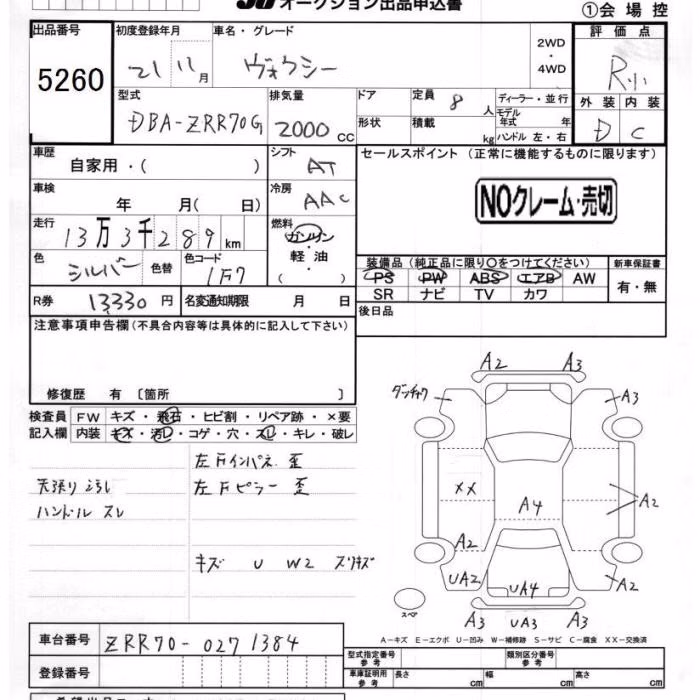 オークション出品申込書
①会場控
出品番号 初度登録年月 車名・グレード 評価点
5260 21 11月 ヴォクシー 2WD・4WD R小
型式 排気量 ドア 定員 8人 ディーラー・並行 外装 内装
DBA-ZRR70G 2000CC 形状 積載 kg モデル年式 年 ハンドル 左・右 D C
車歴 シフト セールスポイント (正常に機能するものに限ります)
自家用・( ) AT
車検 冷房 NOクレーム・売切
年 月( 日) AAC
走行 燃料
13万3千289km ガソリン・軽油
色 色替 色コード ( ) 装備品(純正品に限り○をつけてください) 新車保証書
シルバー 1F7 PS PW ABS エアB AW 有・無
SR ナビ TV カワ
R券 13330円 名変通知期限 月 日 後日品
注意事項申告欄(不具合内容等は具体的に記入して下さい)
修復歴 有 [箇所 ]
検査員 FW キズ・飛石・ヒビ割・リペア跡・×要
記入欄 内装 キズ・汚レ・コゲ・穴・スレ・キレ・破レ
左Fインパネ 歪
天張り ゴらし 左Fピラー 歪
ハンドル スレ
キズ U W2 スリキズ
A2 A3
A3
XX A4 A2
A2
UA2 UA4 A2
スペア
A3 UA3 A3
A-キズ E-エクボ U-凹み W-補修跡 S-サビ C-腐食 XX-交換済
車台番号 ZRR70-0271384
型式指定番号 参考 類別区分番号 参考
登録番号 車庫証明用 参考 長さ cm 幅 cm 高さ cm